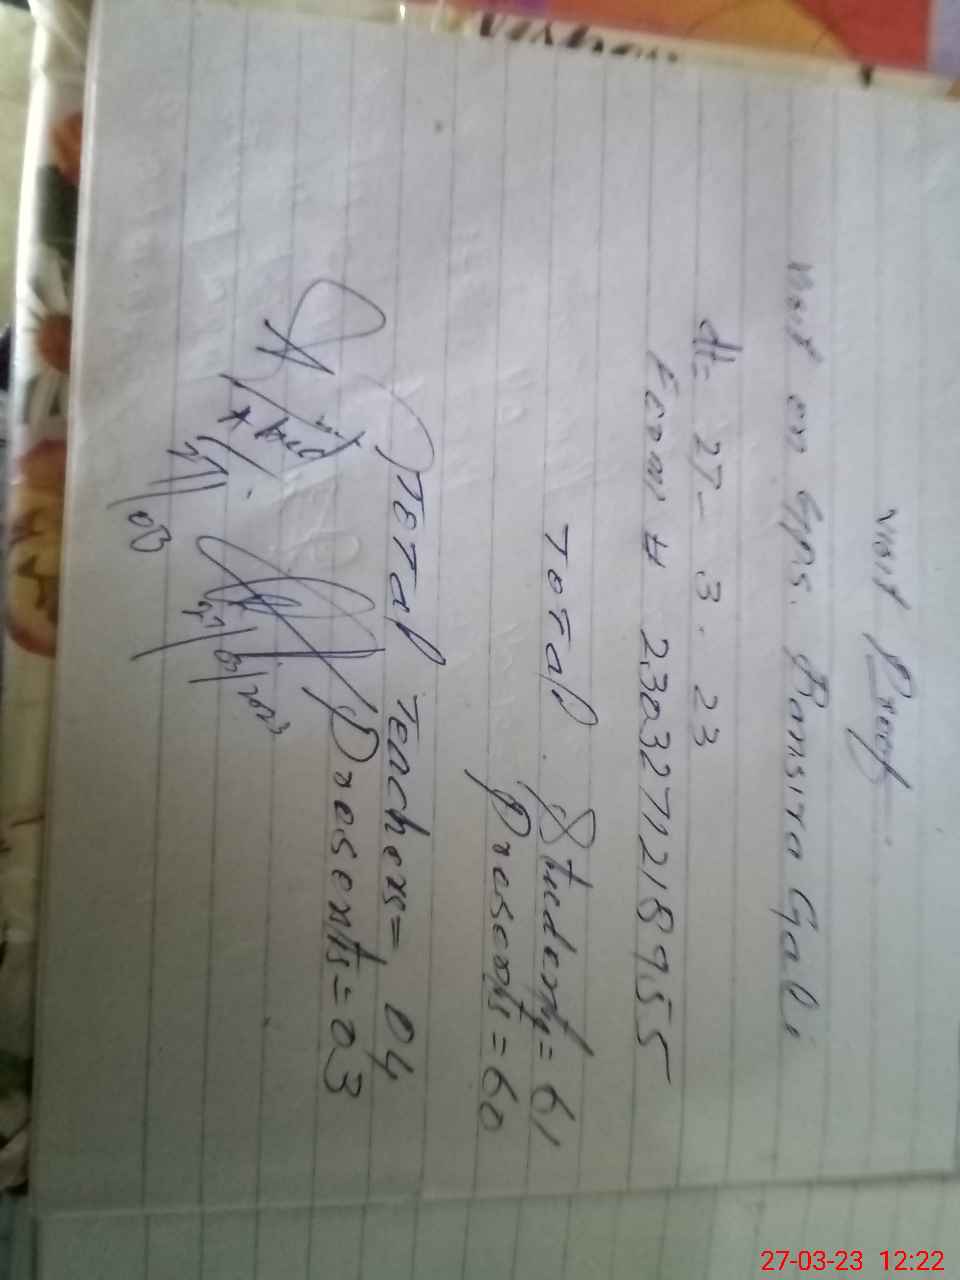 Visit Proof
Visit on Gps. Bansira Gali
dt= 27- 3. 23
Form # 2303271218955
Total . Students= 61
Presents= 60
Total Teachers= 04
Presents= 03
27/03/2023
27-03-23 12:22